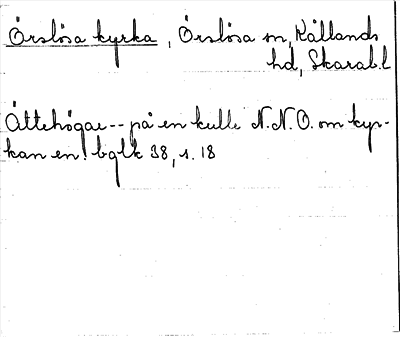 Örslösa kyrka, Örslösa sn, Kållands
hd, Skarab.l
Ättehögar -- på en kulle N.N.O. om kyr-
kan en! bglk 38, s. 18